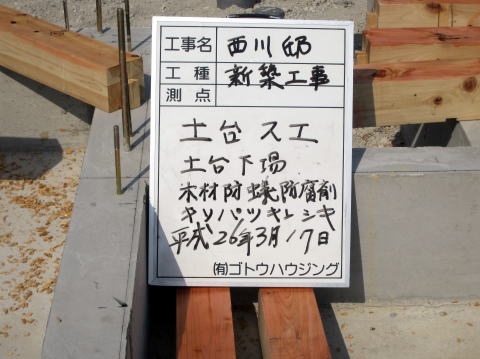 工事名 西川邸
工種 新築工事
測点
土台スエ
土台下場
木材防蟻防腐剤
平成26年3月17日
(有)ゴトウハウジング